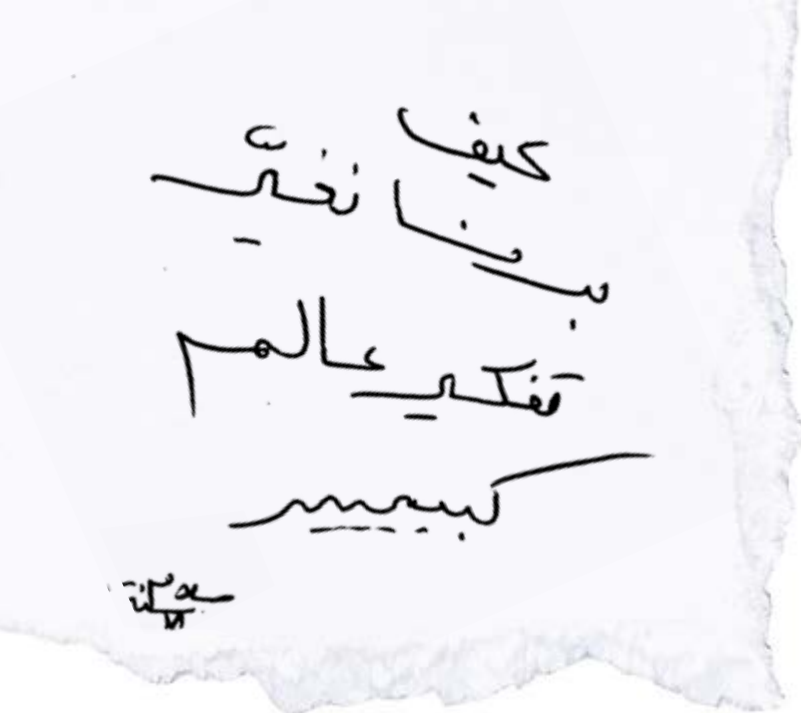 كيف
نغيّر
تفكير عالم
كبير